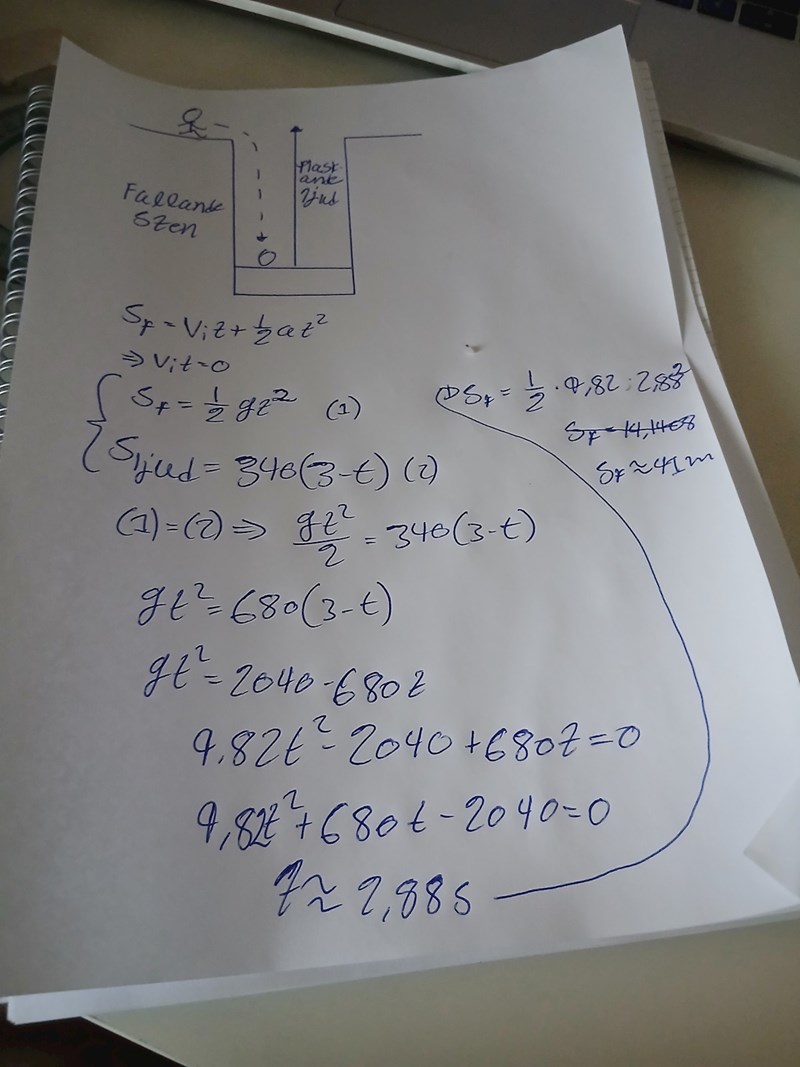 Fallande
Sten
Plask-
ande
ljud
S_f = V_i t + 1/2 a t²
⇒ V_i t = 0
S_f = 1/2 g t² (1)
S_ljud = 340(3-t) (2)
(1) = (2) ⇒ gt²/2 = 340(3-t)
gt² = 680(3-t)
gt² = 2040 - 680t
9,82t² - 2040 + 680t = 0
9,82t² + 680t - 2040 = 0
t ≈ 2,88s
S_f = 1/2 · 9,82 · 2,88²
S_f = 14,1408
S_f ≈ 41m